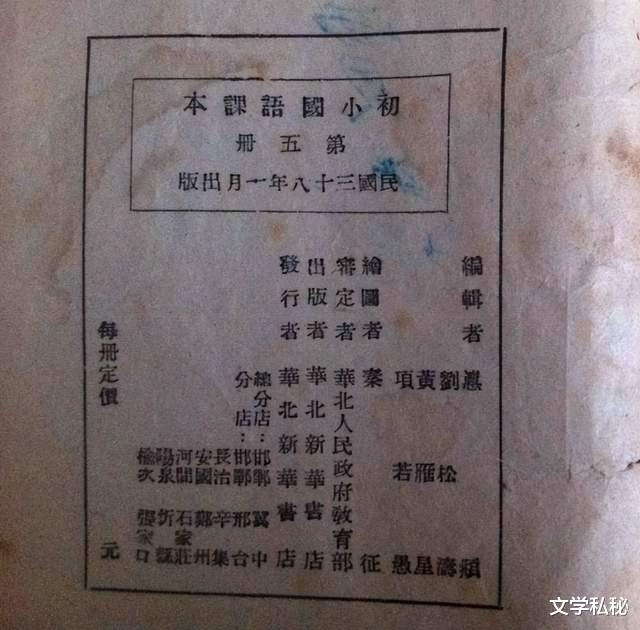 初小國語課本
第五冊
民國三十八年一月出版
編輯者 惠
劉松濤
黃雁星
項若愚
繪圖者 秦征
審定者 華北人民政府教育部
出版者 華北新華書店
發行者 華北新華書店
總分店：邯鄲 冀中
分店：邯鄲 邢台
長治 辛集
安國 鄭州
河間 石家莊
陽泉 忻縣
榆次 張家口
每冊定價 元
文学私秘